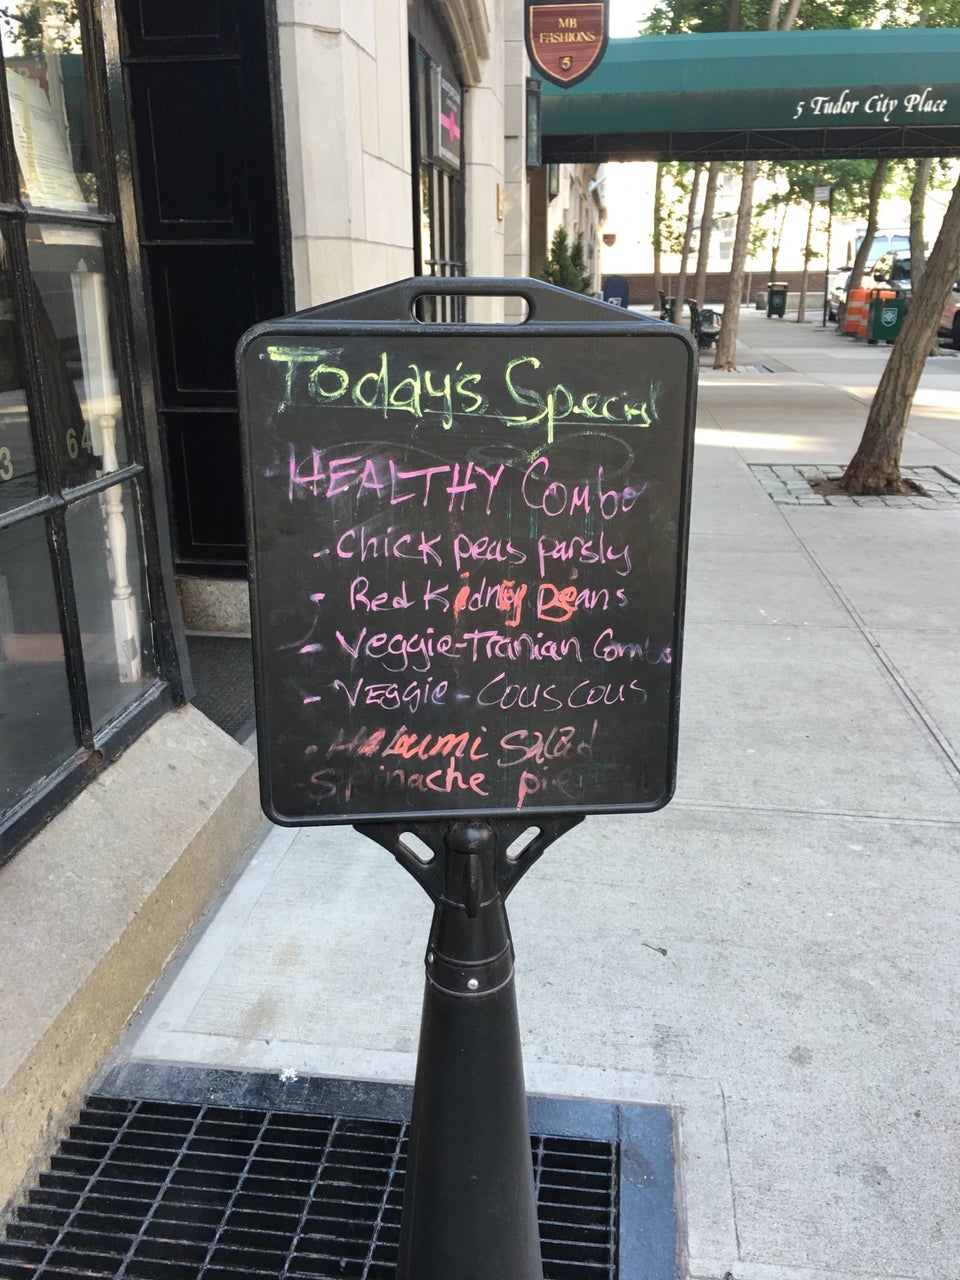 MB
FASHIONS
5
5 Tudor City Place
Today's Special
HEALTHY Combo
- Chick peas parsly
- Red Kidney Beans
- Veggie-Tranian Combo
- VEGGIE - Couscous
- Haloumi Salad
- Spinache pie
64
3